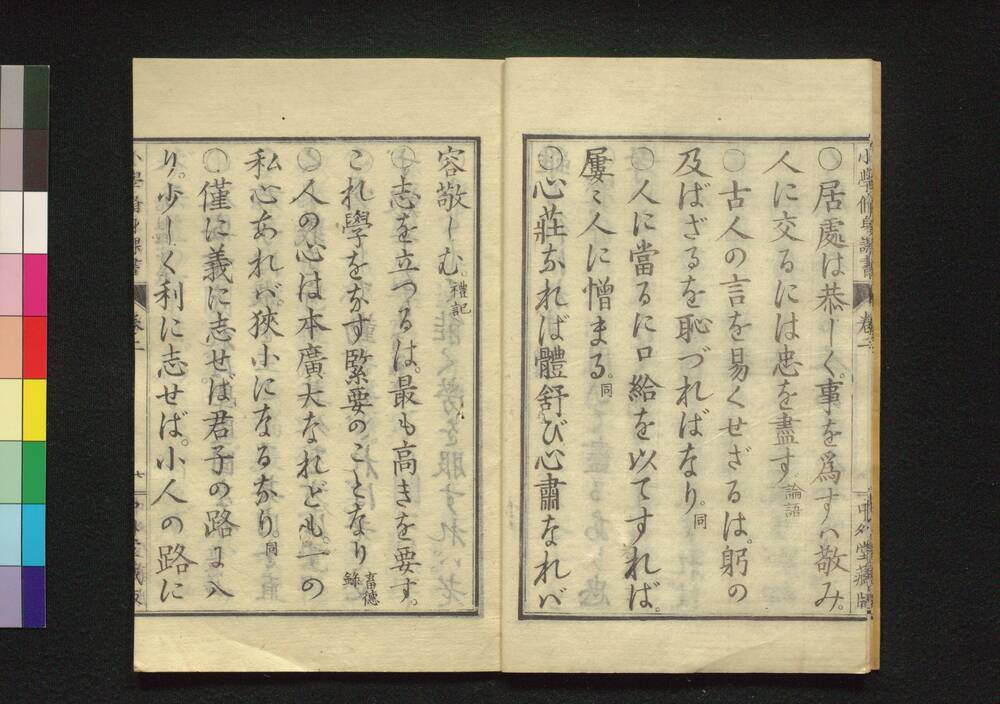 〇居處は恭しく。事を爲すハ敬み。
人に交るには忠を盡す。論語
〇古人の言を易くせざるは。躬の
及ばざるを恥づればなり。同
〇人に當るに口給を以てすれば。
屢〻人に憎まる。同
〇心莊なれば體舒び心肅なれバ
容敬しむ。禮記
〇志を立つるは。最も高きを要す。
これ學をなす緊要のことなり 畜德錄
〇人の心は本廣大なれども。一の
私心あれバ。狹小になるなり。同
〇僅に義に志せば君子の路に入
り。少しく利に志せば。小人の路に